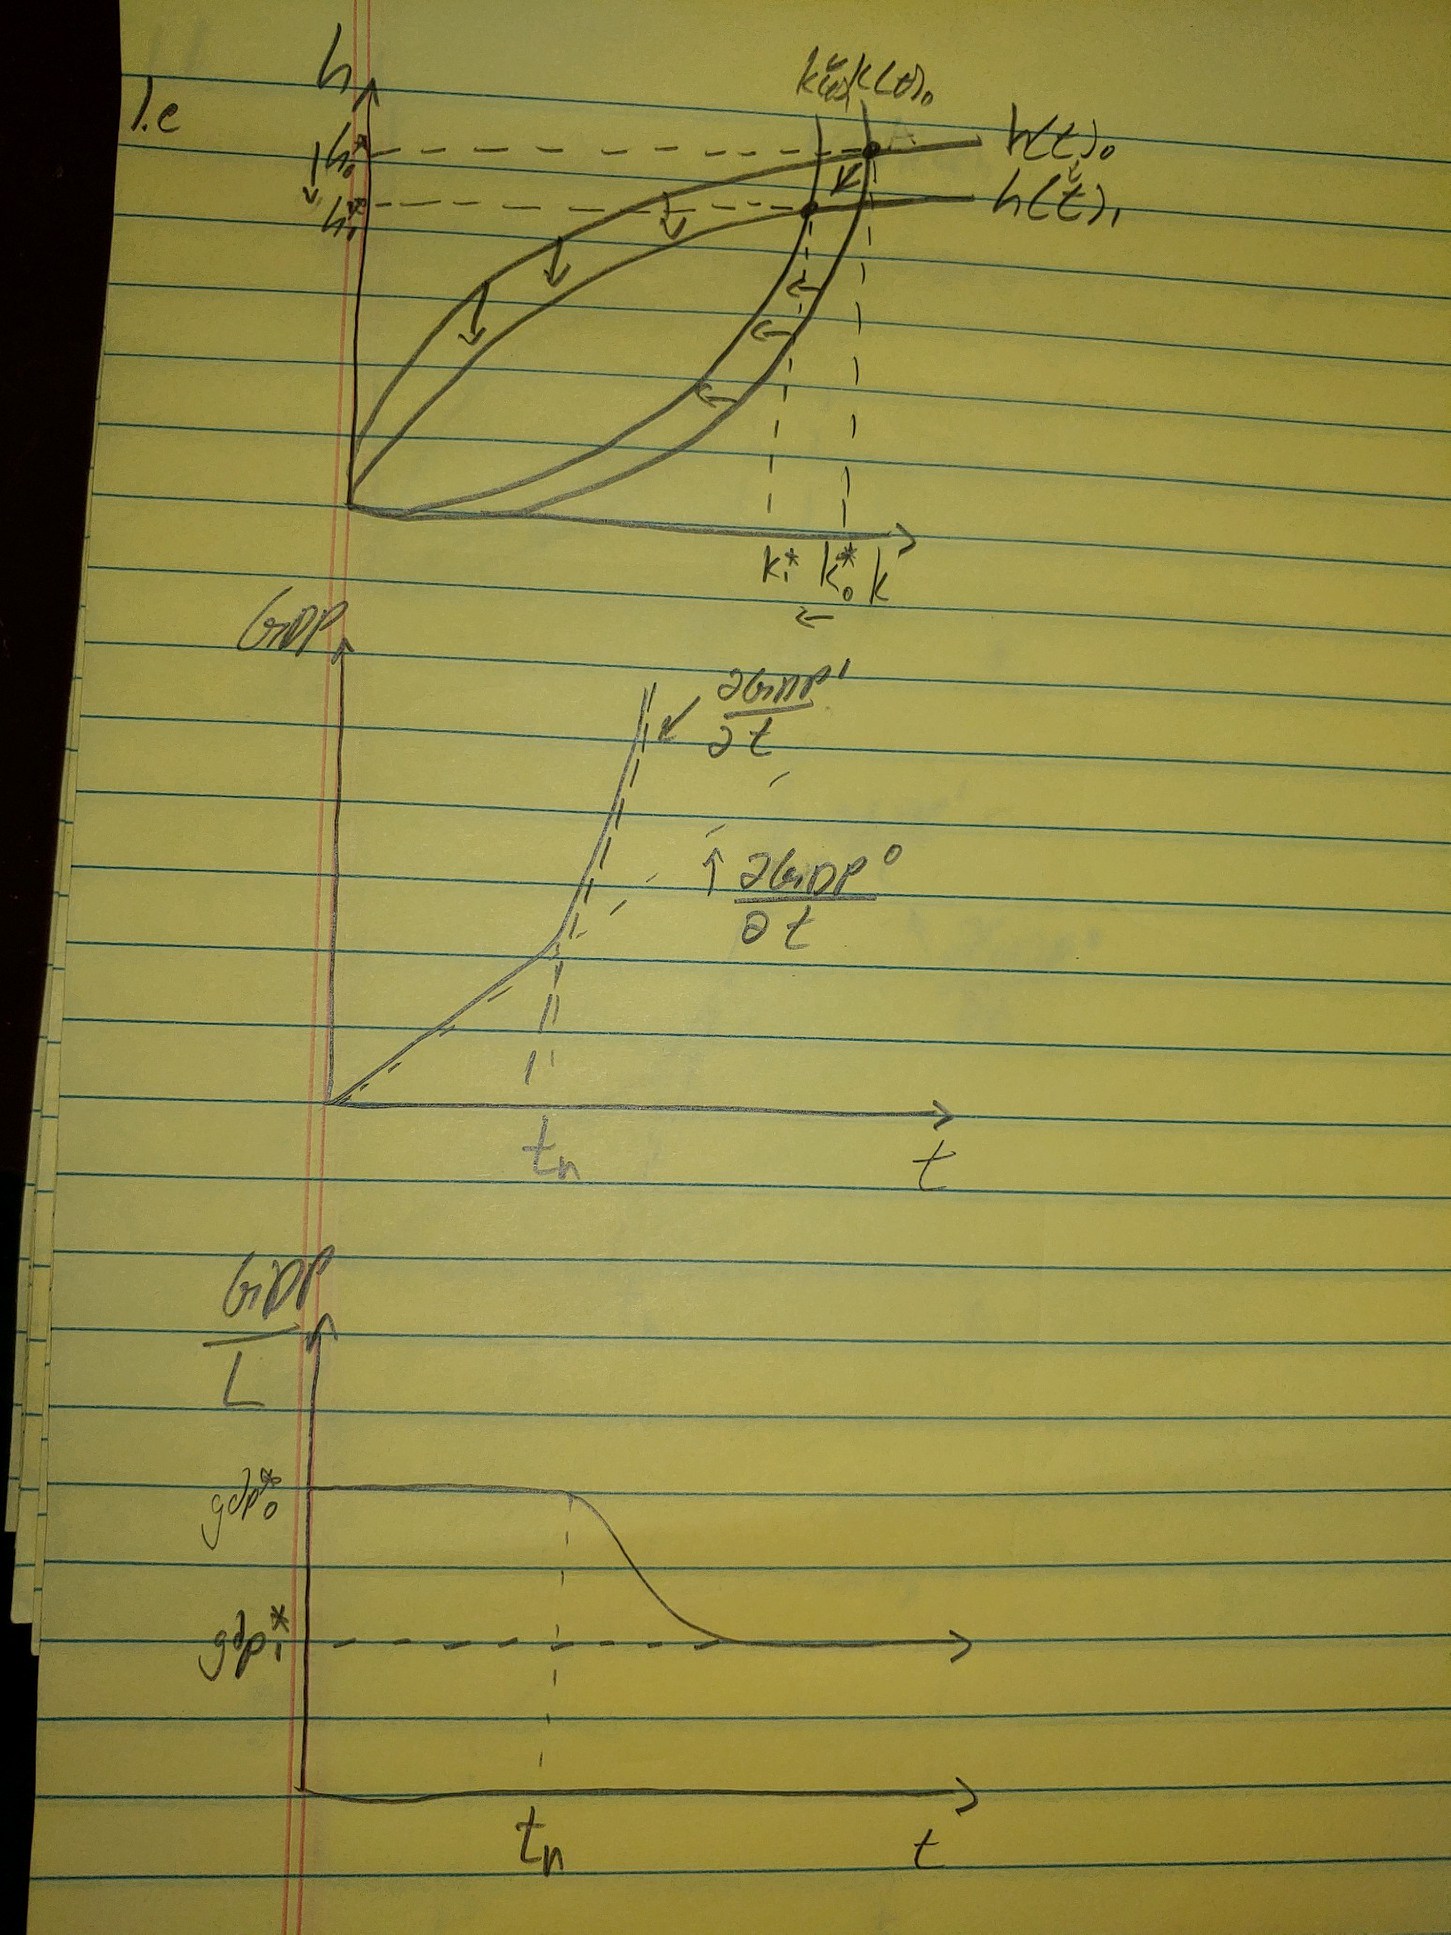 1.e
h
k(t)₁ k(t)₀
h₀*
h(t)₀
h₁*
h(t)₁
k₁* k₀* k
←
GDP
∂GDP¹
∂t
↑ ∂GDP⁰
∂t
tₙ t
GDP
L
gdp₀*
gdp₁*
tₙ t